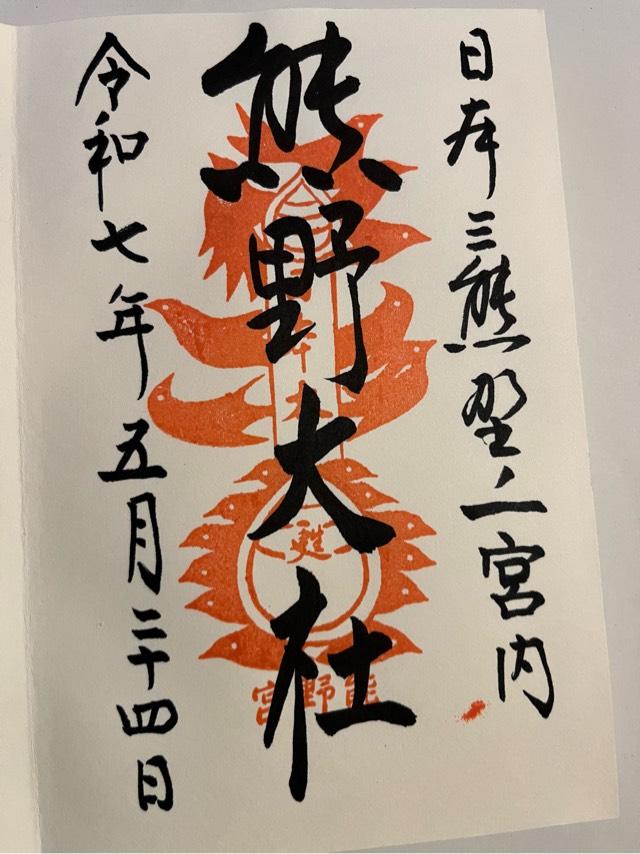 日本三熊野ノ一宮内
熊野大社
令和七年五月二十四日